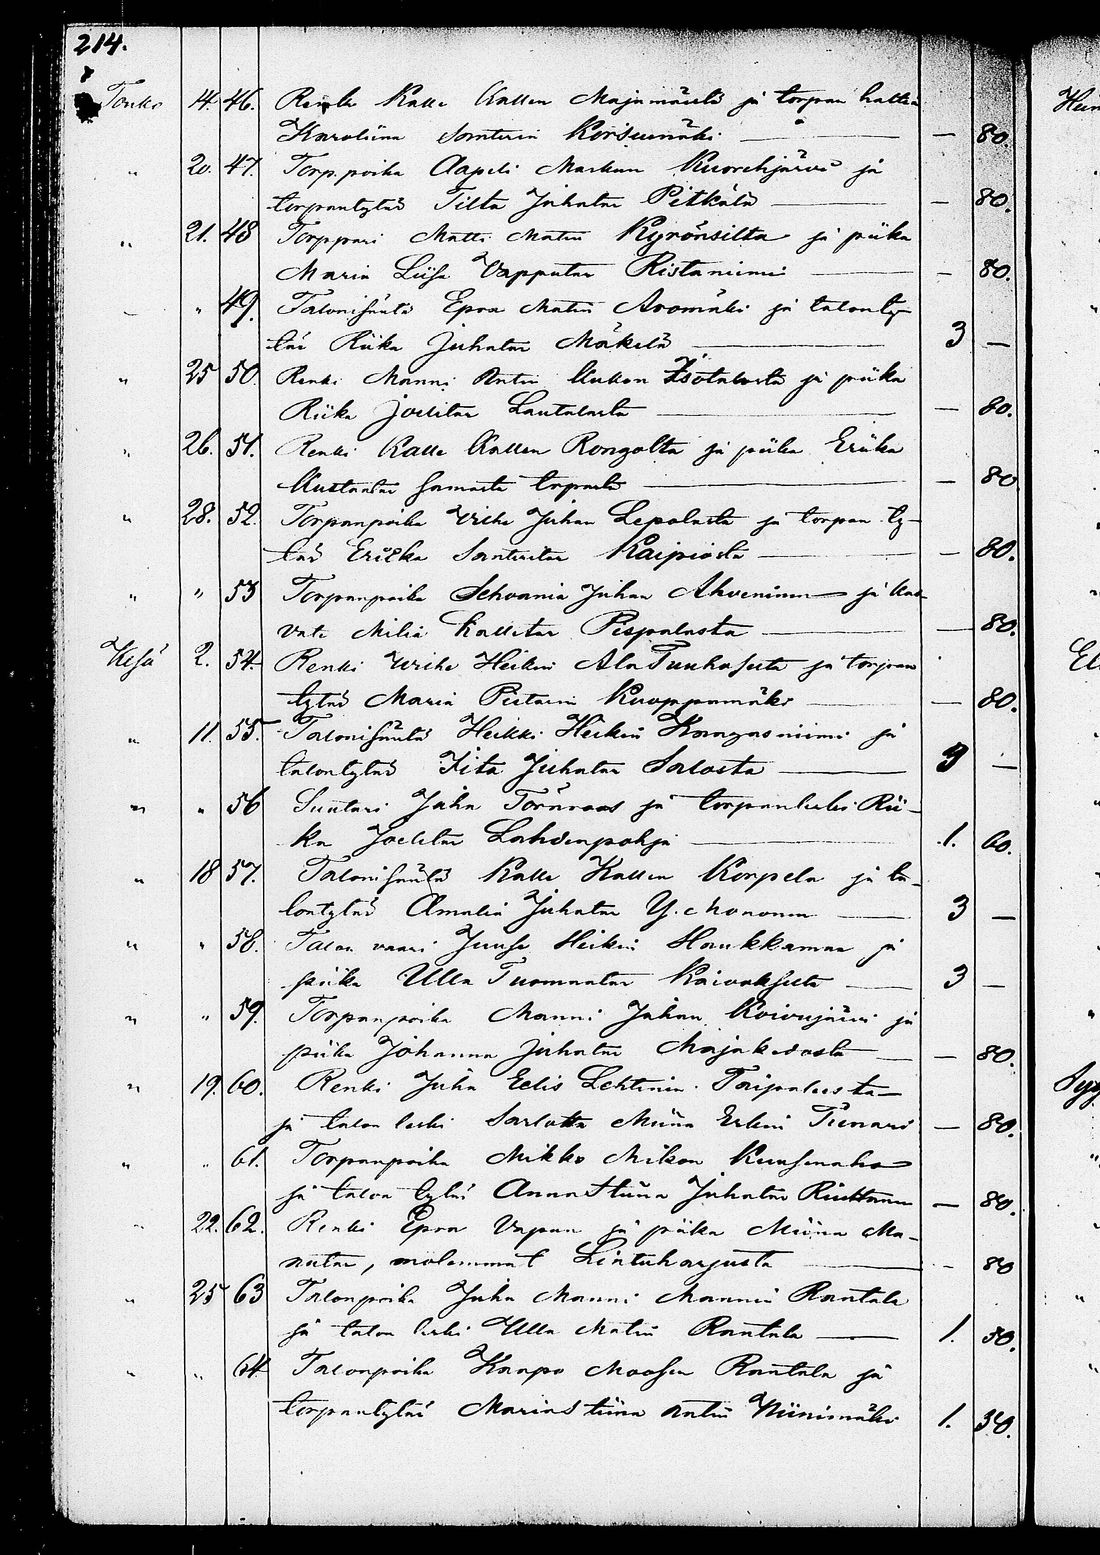 214.
Touko 14. 46. Renki Kalle Kallen Majamäeltä ja torpan haltia
Karoliina Santerin Korsumäki — 80.
„ 20. 47. Torp.poika Aapeli Markun Kuorehjärvi ja
torpantytär Tilta Juhatar Pitkälä — 80.
„ 21. 48 Torppari Matti Matin Kyrönsilta ja piika
Maria Liisa Vapputar Ristaniemi — 80.
„ „ 49. Talonisäntä Epra Matin Aromäki ja talonty-
tär Riika Juhatar Mäkelä 3 —
„ 25 50. Renki Manni Antin Isotalosta ja piika
Riika Joelitar Lautalasta — 80.
„ 26. 51. Renki Kalle Kallen Rongolta ja piika Eriika
Kustaatar samasta torpasta — 80
„ 28. 52. Torpanpoika Vihe Juhan Lepolasta ja torpan ty-
tär Eriika Santeritar Kaipiosta — 80.
„ „ 53 Torpanpoika Sehvania Juhan Ahveninen ja kas-
vati Milia Kalletar Pispalasta — 80.
Kesä 2. 54. Renki Vihe Heikin Ala Tuuhosesta ja torpan
tytär Maria Pietarin Kuoppamäki — 80.
„ 11. 55. Talonisäntä Heikki Heikin Kangasniemi ja
talontytär Iita Juhatar Salosta 3 —
„ „ 56 Suutari Juha Törnroos ja torpanleski Rii-
ka Joelitar Lahdenpohja 1. 60.
„ 18 57. Talonisäntä Kalle Kallen Korpela ja ta-
lontytär Amalia Juhatar Y. Mononen 3 —
„ „ 58. Talon vaari Juuse Heikin Haukkamaa ja
piika Ulla Tuomaatar Kaivoksesta 3 —
„ „ 59. Torpanpoika Manni Juhan Koivujärvi ja
piika Johanna Juhatar Majakedosta — 80.
„ 19. 60. Renki Juha Eelis Lehtinin Taipaleesta
ja talon leski Sarlotta Miina Erkin Tienari — 80.
„ „ 61. Torpanpoika Mikko Mikon Kuusenaho
ja talon tytär Anna Stiina Juhatar Riuttanen — 80.
„ 22. 62. Renki Epra Vapun ja piika Miina Ma-
natar, molemmat Lintuharjusta — 80
„ 25 63 Talonpoika Juha Manni Mannin Rantala
ja talon leski Ulla Matin Rantala 1. 50.
„ „ 64 Talonpoika Kaapo Moosen Rantala ja
torpantytär Maria Stiina Antin Niinimäki 1. 30.